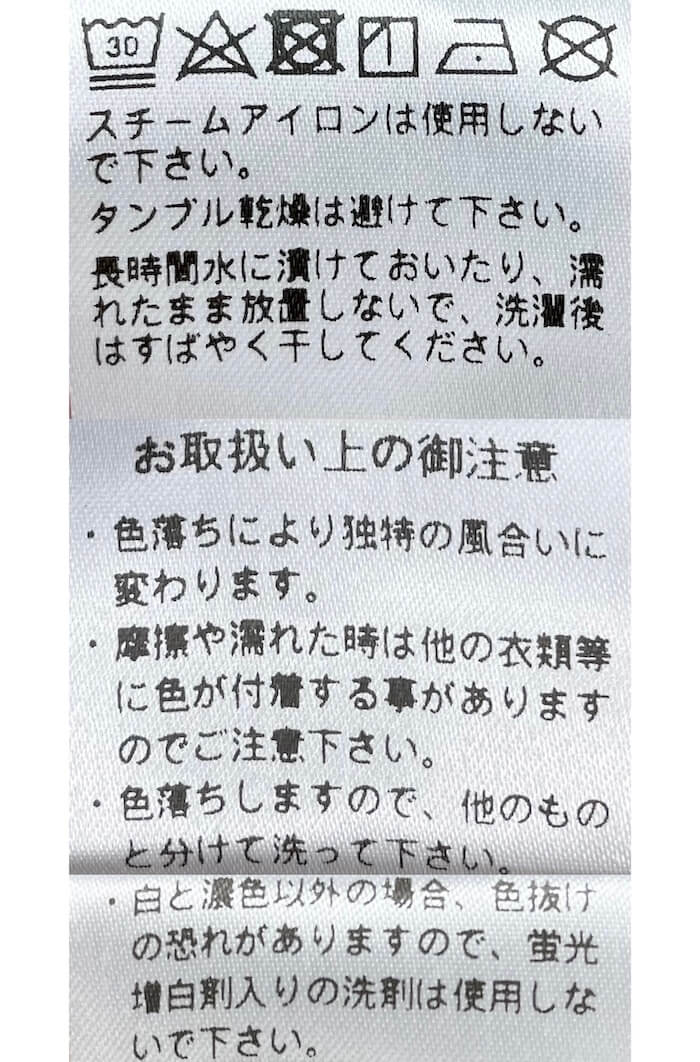 30
スチームアイロンは使用しない
で下さい。
タンブル乾燥は避けて下さい。
長時間水に漬けておいたり、濡
れたまま放置しないで、洗濯後
はすばやく干してください。
お取扱い上の御注意
・色落ちにより独特の風合いに
変わります。
・摩擦や濡れた時は他の衣類等
に色が付着する事があります
のでご注意下さい。
・色落ちしますので、他のもの
と分けて洗って下さい。
・白と濃色以外の場合、色抜け
の恐れがありますので、蛍光
増白剤入りの洗剤は使用しな
いで下さい。